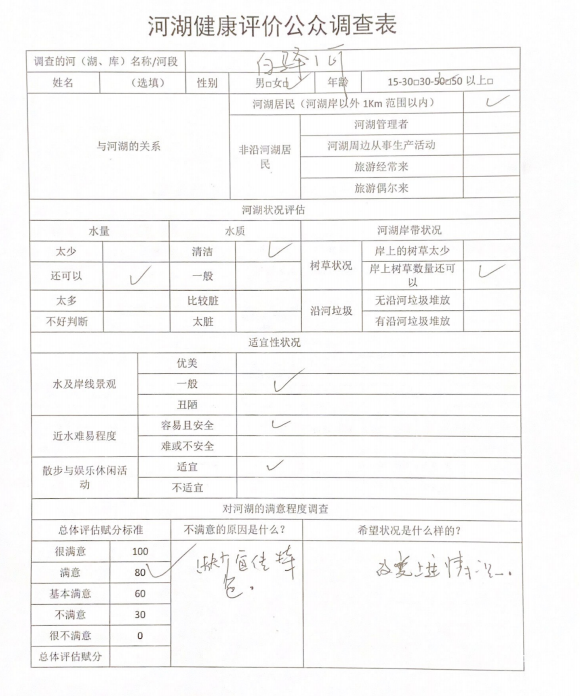 河湖健康评价公众调查表
调查的河（湖、库）名称/河段 白驿河
姓名 （选填） 性别 男□女□✓ 年龄 15-30□30-50□50 以上□
与河湖的关系 河湖居民（河湖岸以外 1Km 范围以内） ✓
非沿河湖居民
河湖管理者
河湖周边从事生产活动
旅游经常来
旅游偶尔来
河湖状况评估
水量 水质 河湖岸带状况
太少 清洁 ✓ 树草状况 岸上的树草太少
还可以 ✓ 一般 岸上树草数量还可以 ✓
太多 比较脏 沿河垃圾 无沿河垃圾堆放
不好判断 太脏 有沿河垃圾堆放
适宜性状况
水及岸线景观 优美
一般 ✓
丑陋
近水难易程度 容易且安全 ✓
难或不安全
散步与娱乐休闲活动 适宜 ✓
不适宜
对河湖的满意程度调查
总体评估赋分标准 不满意的原因是什么？ 希望状况是什么样的？
很满意 100
满意 80 ✓ 缺少宣传特色。 改变上述情况。
基本满意 60
不满意 30
很不满意 0
总体评估赋分